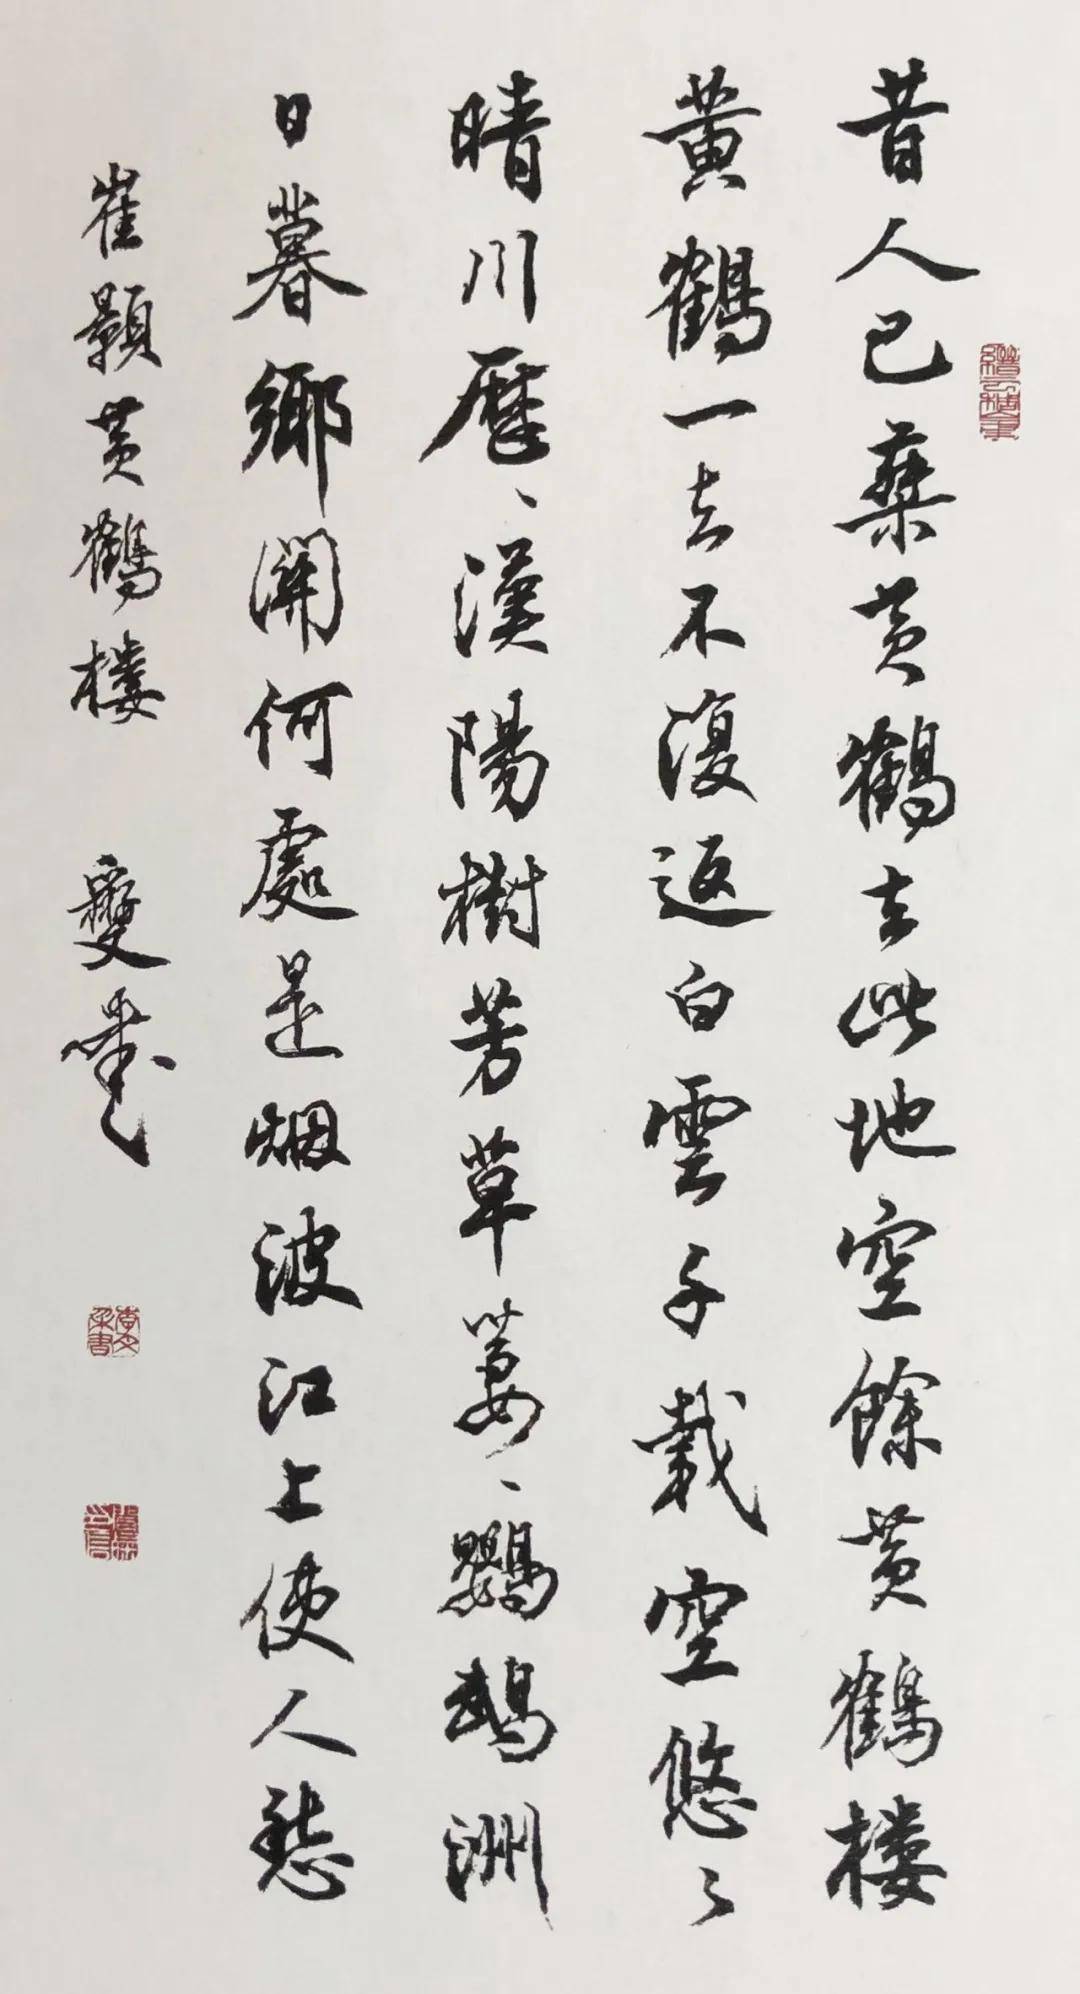 昔人已乘黄鶴去此地空餘黄鶴樓
黄鶴一去不復返白雲千載空悠々
晴川歷、漢陽樹芳草萋、鸚鵡洲
日暮鄉關何處是烟波江上使人愁
崔顥黄鶴樓